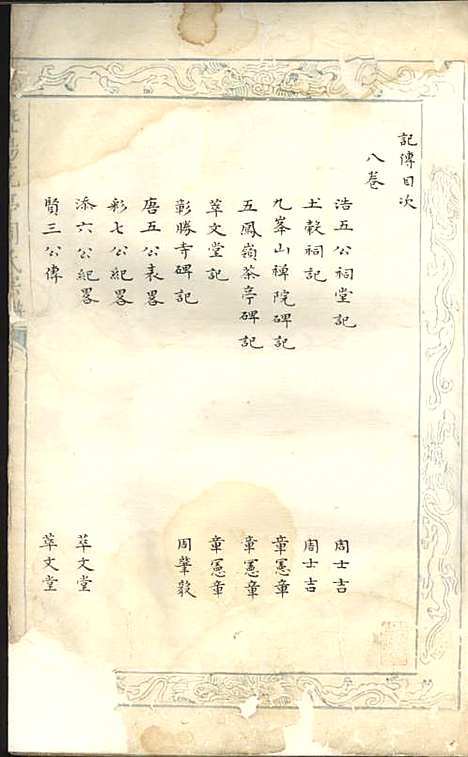 記傳目次
八卷
浩五公祠堂記 周士吉
土穀祠記 周士吉
九峯山禅院碑記 章憲章
五鳳嶺茶亭碑記 章憲章
萃文堂記 章憲章
彰勝寺碑記 周肇毅
唐五公表畧
彩七公紀畧
添六公紀畧 萃文堂
賢三公傳 萃文堂